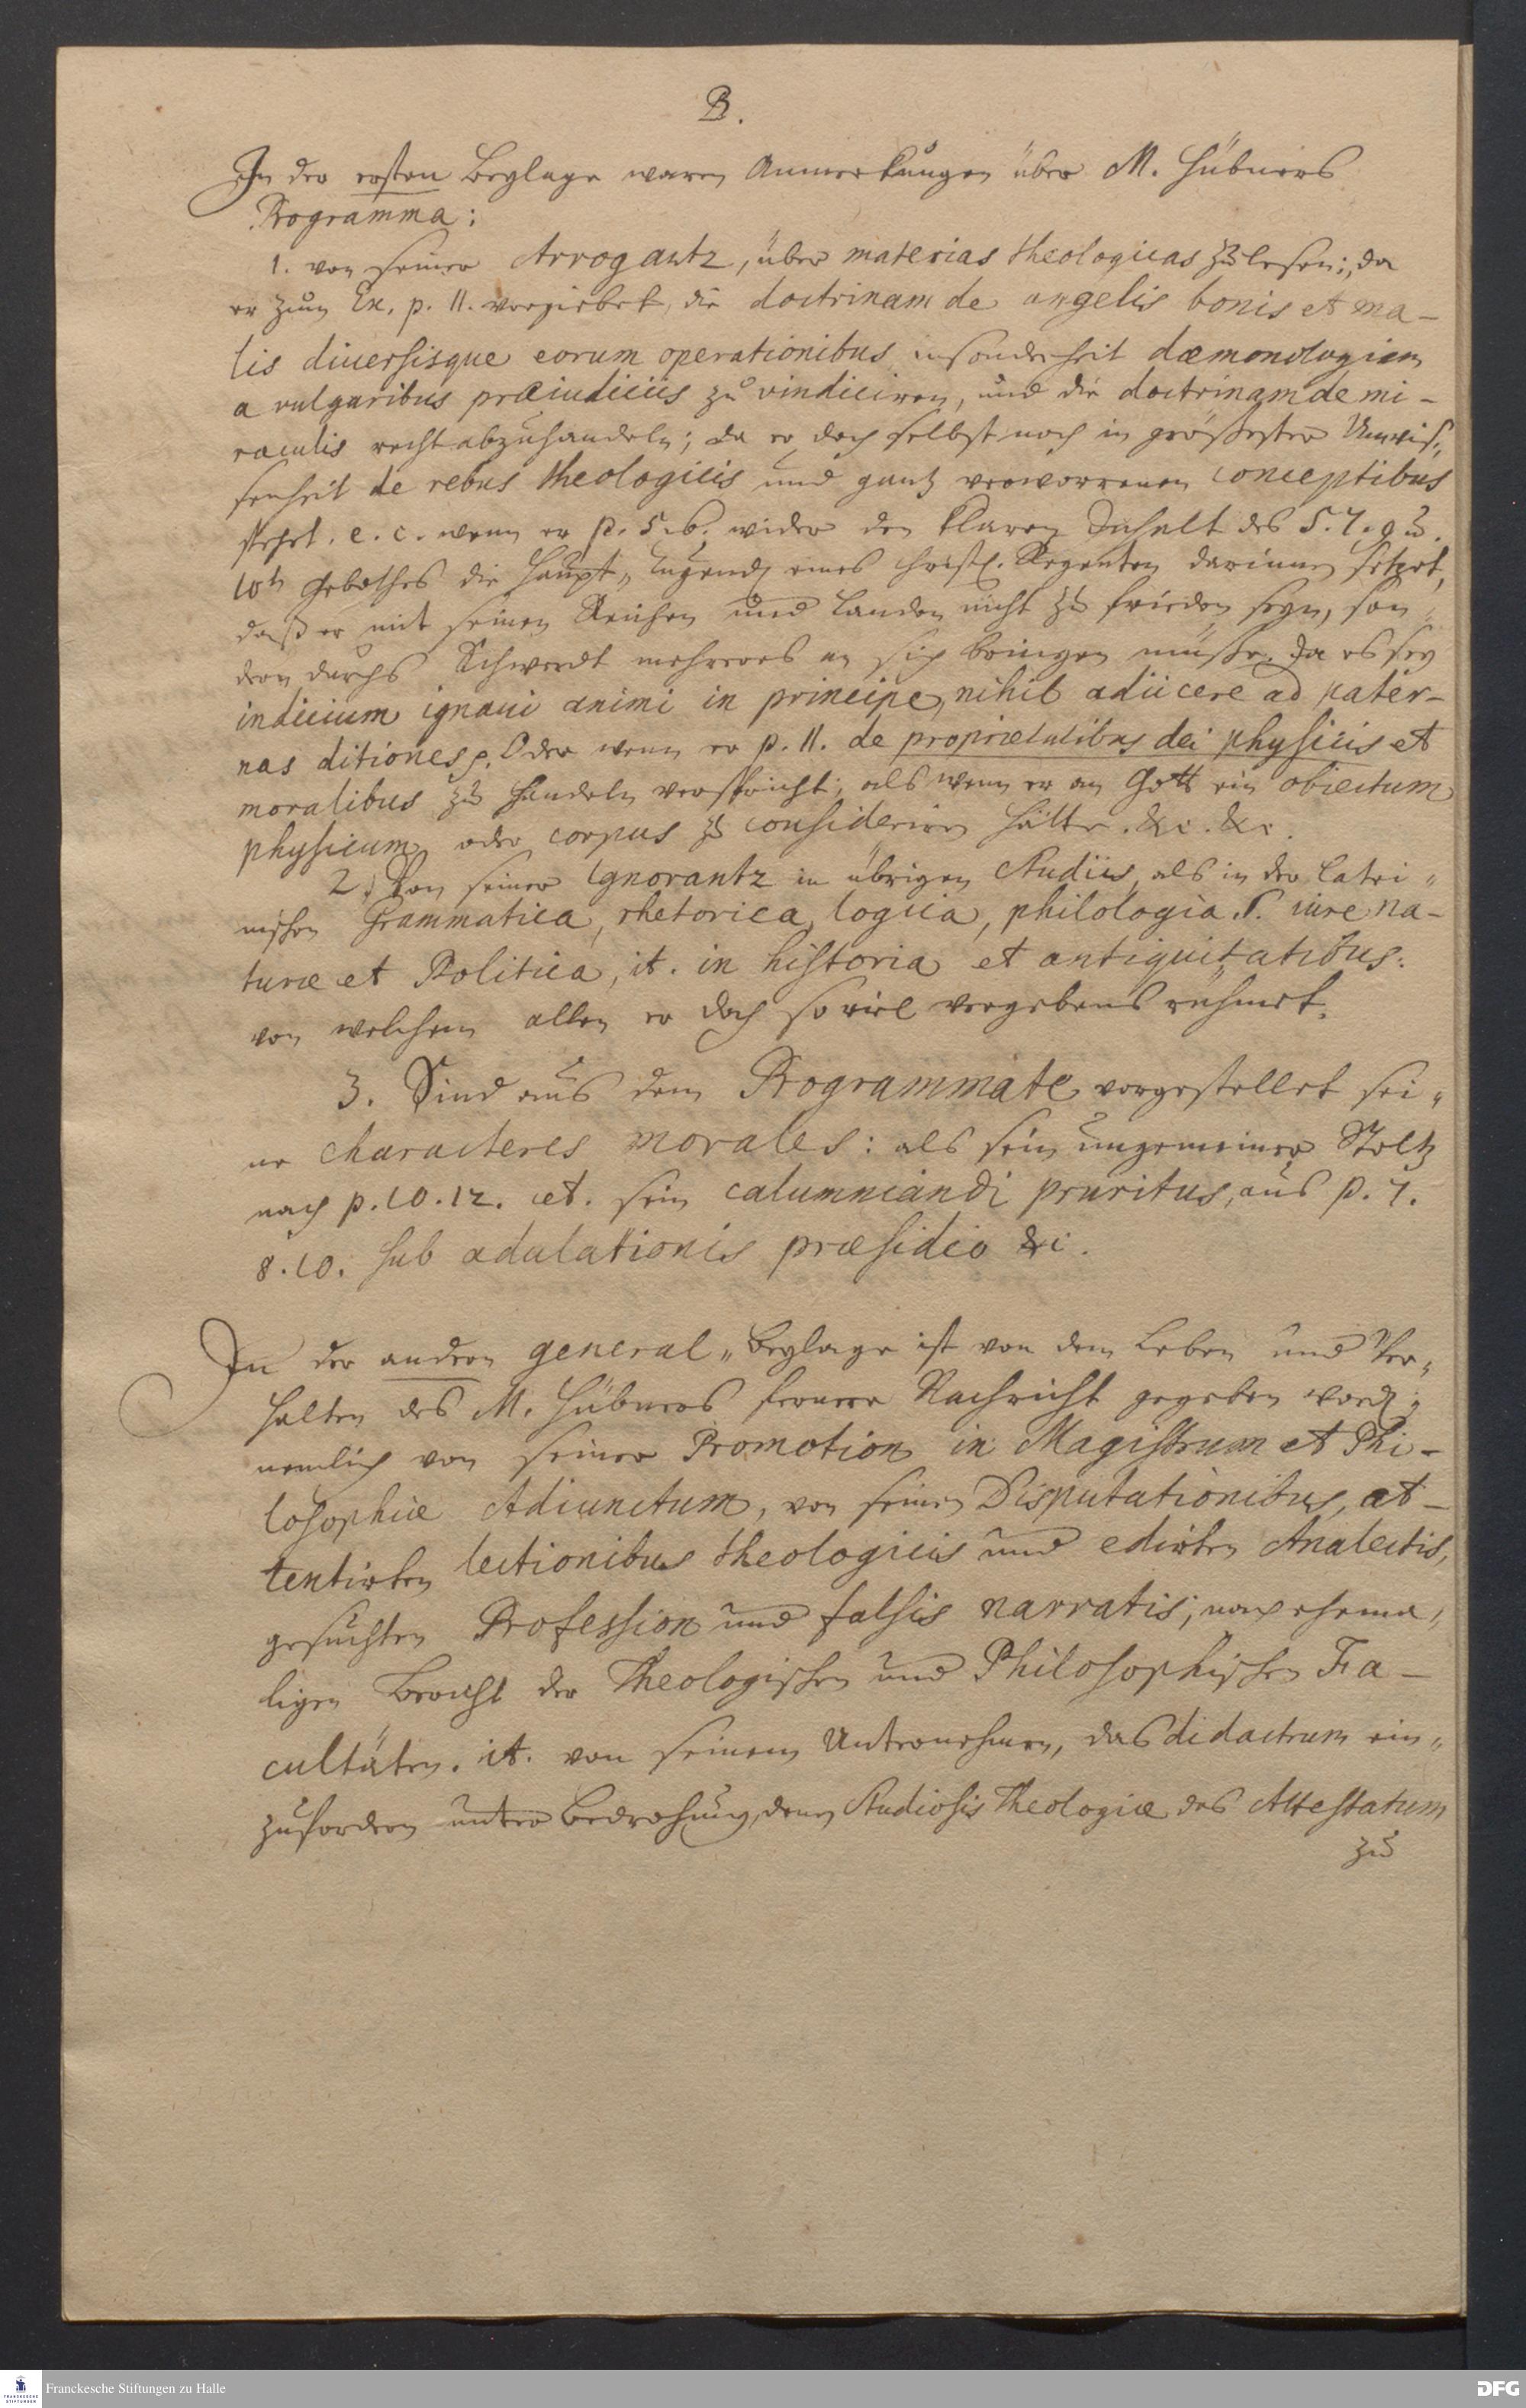 B.
In der ersten Beylage waren Anmerkungen über M. Hübners
Programma:
1. von seiner Arrogantz, über materias theologicas zu lesen; da
er zum Ex. p. 11. vorgiebet, die doctrinam de angelis bonis et ma-
lis diuersisque eorum operationibus insonderheit dæmonologiam
a vulgaribus præiudiciis zu vindiciren, und die doctrinam de mi-
raculis recht abzuhandeln; da er doch selbst noch in größester Unwis„
senheit de rebus theologicis und gantz verworrenen conceptibus
stehet. e. c. wenn er p. 5. 6. wider den klaren Inhalt des 5. 7. 9 u.
10t Gebothes die Haupt„Tugend eines Christl. Regenten darinnen setzet,
daß er mit seinen Reichen und Landen nicht zu frieden seyn, son„
dern durchs Schwerdt mehreres an sich bringen müsse. da es sey
indicium ignaui animi in principe, nihil adiicere ad pater-
nas ditiones p. Oder wenn er p. 11. de proprietatibus dei physicis et
moralibus zu handeln verspricht; als wenn er an Gott ein obiectum
physicum oder corpus zu consideriren hätte. &c. &c.
2. Von seiner Ignorantz in übrigen Studiis, als in der latei„
nischen Grammatica, rhetorica, logica, philologia S. iure na-
turæ et Politica, it. in historia et antiquitatibus:
von welchem allen er doch so viel vergebens rühmet.
3. Sind aus dem Programmate vorgestellet sei„
ne characteres morales: als sein ungemeiner Stoltz
nach p. 10. 12. it. sein calumniandi pruritus, aus p. 7.
8. 10. sub adulationis præsidio &c.
In der andern general„Beylage ist von dem Leben und Ver„
halten des M. Hübners fernere Nachricht gegeben word;
nemlich von seiner Promotion in Magistrum et Phi-
losophiæ Adiunctum, von seinen Disputationibus, at-
tentirten lectionibus theologicis und edirten Analectis,
gesuchten Profession und falsis narratis; nach ehema„
ligen Bericht der Theologischen und Philosophischen Fa-
cultäten. it. von seinem Unternehmen, das didactrum ein„
zufordern unter Bedrohung, denen Studiosis Theologiæ das Attestatum
zu
Franckesche Stiftungen zu Halle
FRANCKESCHE STIFTUNGEN
DFG